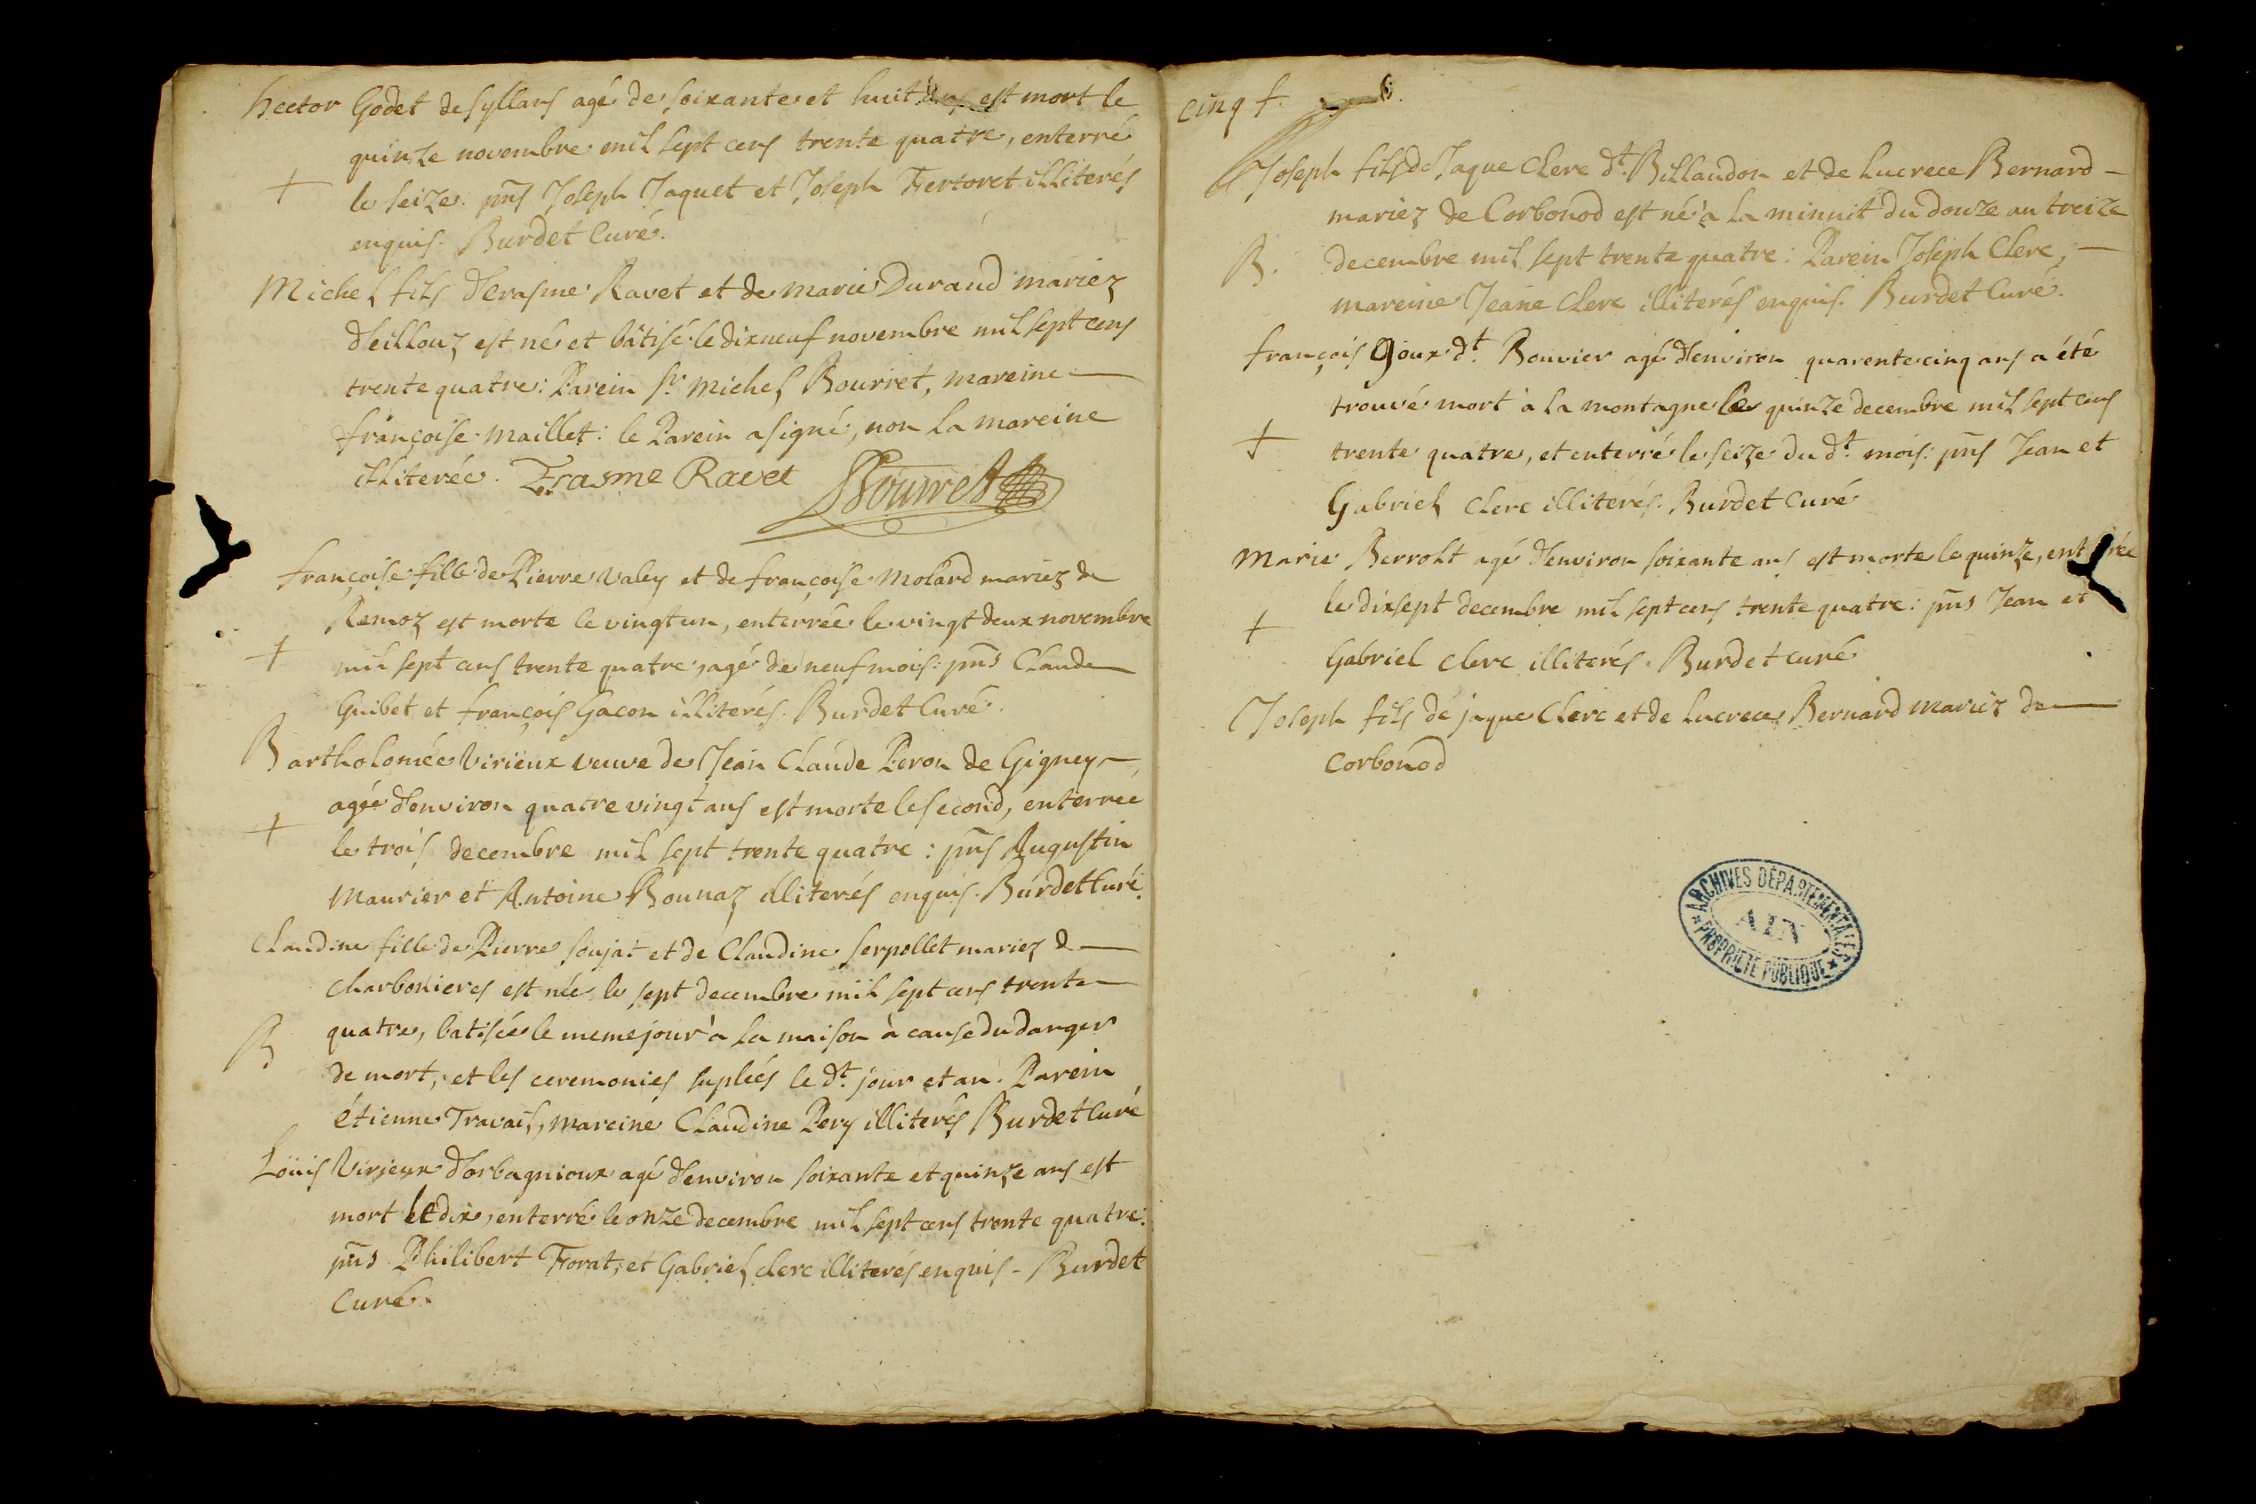 hector Godet de syllans agé de soixante et huit ans est mort le
quinze novembre mil sept cens trente quatre, enterré
+ le seize. pns Joseph Jaquet et Joseph Fertoret illiterés
enquis. Burdet Curé.
Michel fils d'erasme Ravet et de marie Durand mariez
d'eillouz est né et bâtisé le dixneuf novembre mil sept cens
trente quatre: Parein sr. michel Bourret, mareine
françoise maillet: le Parein a signé, non la mareine
illiterée. Erasme Ravet Bourret
françoise fille de Pierre valey et de françoise molard mariez de
Remoz est morte le vingt un, enterrée le vingt deux novembre
+ mil sept cens trente quatre, agé de neuf mois: pns Claude
Guibet et françois Gacon illiterés. Burdet Curé.
Bartholomée Virieux veuve de Jean Claude Peron de Gigney,
agée d'environ quatre vingt ans est morte le second, enterree
+ le trois decembre mil sept trente quatre: pns Augustin
Maurier et Antoine Bonnaz illiterés enquis. Burdet Curé.
Claudine fille de Pierre soujat et de Claudine serpollet mariez de
charbonieres est née le sept decembre mil sept cens trente
B quatre, batisée le meme jour à la maison à cause du danger
de mort, et les ceremonies supleés le dt. jour et an. Parein
étienne Travail, mareine Claudine Pery illiterés Burdet Curé
Loüis Virieux d'orbagnioux agé d'environ soixante et quinze ans est
mort le dix, enterré le onze decembre mil sept cens trente quatre:
pns Philibert Forat, et Gabriel clerc illiterés enquis - Burdet
Curé.
cinq f. 6.
Joseph fils de Jaque Clerc dt. Billaudon et de Lucrece Bernard
mariez de Corbonod est né à la minuit du douze au treize
B. decembre mil sept trente quatre: Parein Joseph Clerc,
mareine Jeane Clerc illiterés enquis. Burdet Curé.
françois Goux dt. Bouvier agé d'environ quarente cinq ans a été
trouvé mort à la montagne le quinze decembre mil sept cens
+ trente quatre, et enterré le seize du dt. mois: pns Jean et
Gabriel Clerc illiterés. Burdet Curé
Marie Berrolt agé d'environ soixante ans est morte le quinze, enterrée
le dixsept decembre mil sept cens trente quatre: pns Jean et
+ Gabriel clerc illiterés. Burdet curé
Joseph fils de jaque Clerc et de Lucrece Bernard mariez de
Corbonod
ARCHIVES DÉPARTEMENTALES
AIN
PROPRIÉTÉ PUBLIQUE